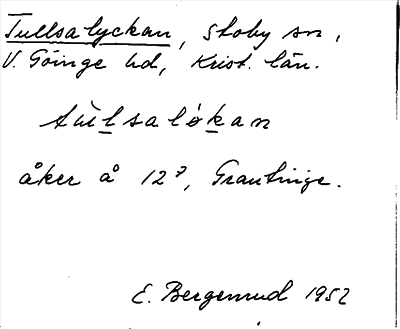 Tullsalyckan, Stoby sn,
V. Göinge hd, Krist. län.
tùlsaløkan
åker å 12⁷, Grantinge.
E. Bergenrud 1952